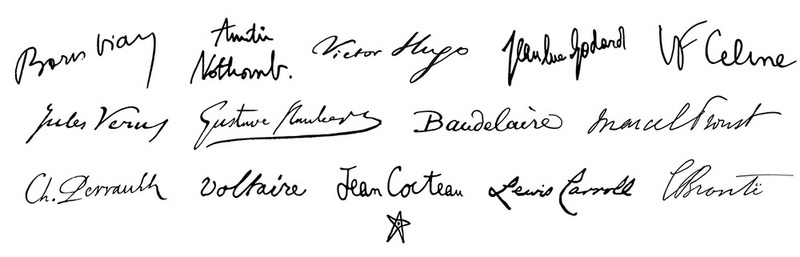 Boris Vian Amélie Nothomb. Victor Hugo Jean Luc Godard LF Celine
Jules Verne Gustave Flaubert Baudelaire Marcel Proust
Ch. Perrault Voltaire Jean Cocteau Lewis Carroll CBrontë